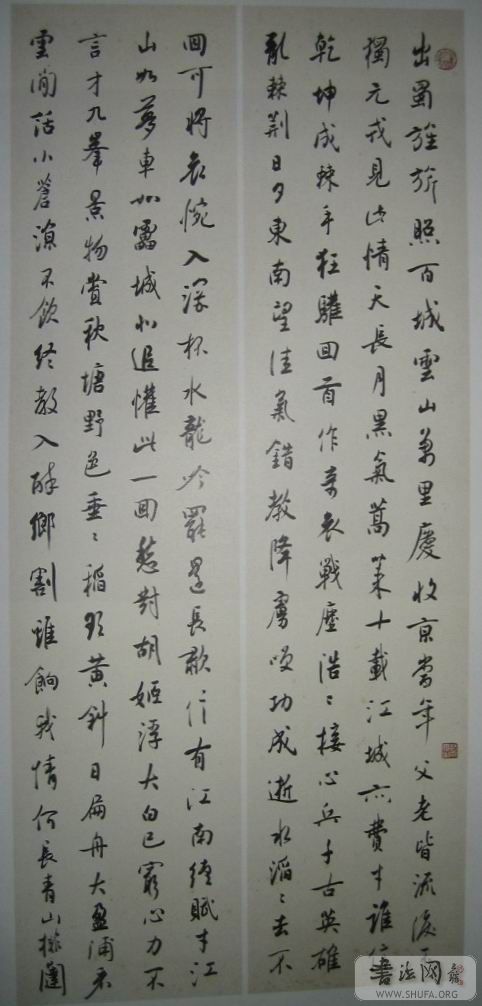 出蜀旌旂照百城雲山萬里慶收京當年父老皆流涕不
獨元戎見此情天長月黑氣蒿萊十載江城亦費才誰信
乾坤成棘手狂驅回首作奇哀戰塵浩浩接心兵千古英雄
亂棘荊日夕東南望佳氣錯教降虜嘆功成逝水滔滔去不
回可將哀惋入深杯水龍吟罷還長歌信有江南賦才江
山如夢車如靁城北追懽此一回愁對胡姬浮大白已窮心力不
言才九峯景物賞秋塘野色垂垂稻黃斜日扁舟大盈浦
雲閒話小蒼涼不飲終教入醉鄉割雞餉我情何長青山擁
書法网
WWW.SHUFA.ORG